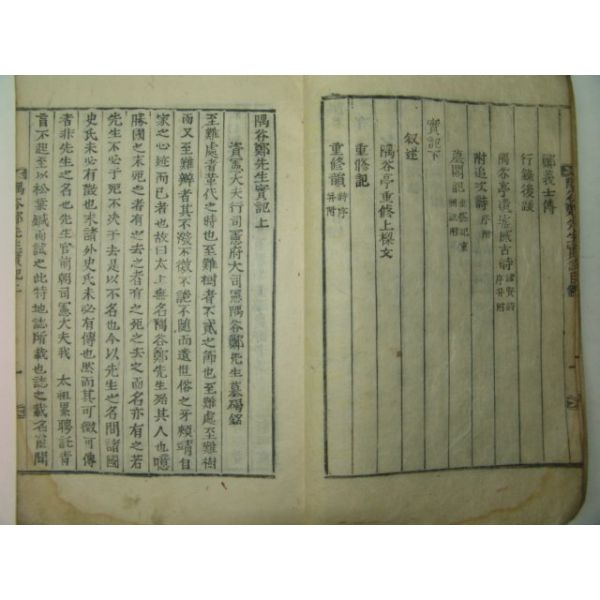 鄭義士傳
行錄後跋
隅谷亭遺墟感古詩 諸賢詩序并附
附追次詩 序附
墓閣記
實記下
叙述
隅谷亭重修上樑文
重修記
重修韻 詩序并附
隅谷鄭先生實記上
資憲大夫行司憲府大司憲隅谷鄭先生墓碣銘
至難處者革代之時也至難樹者不貳之節也至難處至難樹
而又至難辨者其不潑不微不詭不隨而遺世俗之牙頰靖自
家之心迹而已者也故曰太上無名隅谷鄭先生殆其人也噫
勝國之末死之者有之去之者有之死之去之而名亦有之若
先生不必于死不決于去是以不名也今以先生之名問諸國
史氏未必有徵也求諸外史氏未必有傳也然而其可徵可傳
者非先生之名也先生官前朝司憲大夫我 太祖累聘託青
盲不起至以松葉鍼而試之此特地誌所載也誌之載名
隅谷鄭先生實記上 一